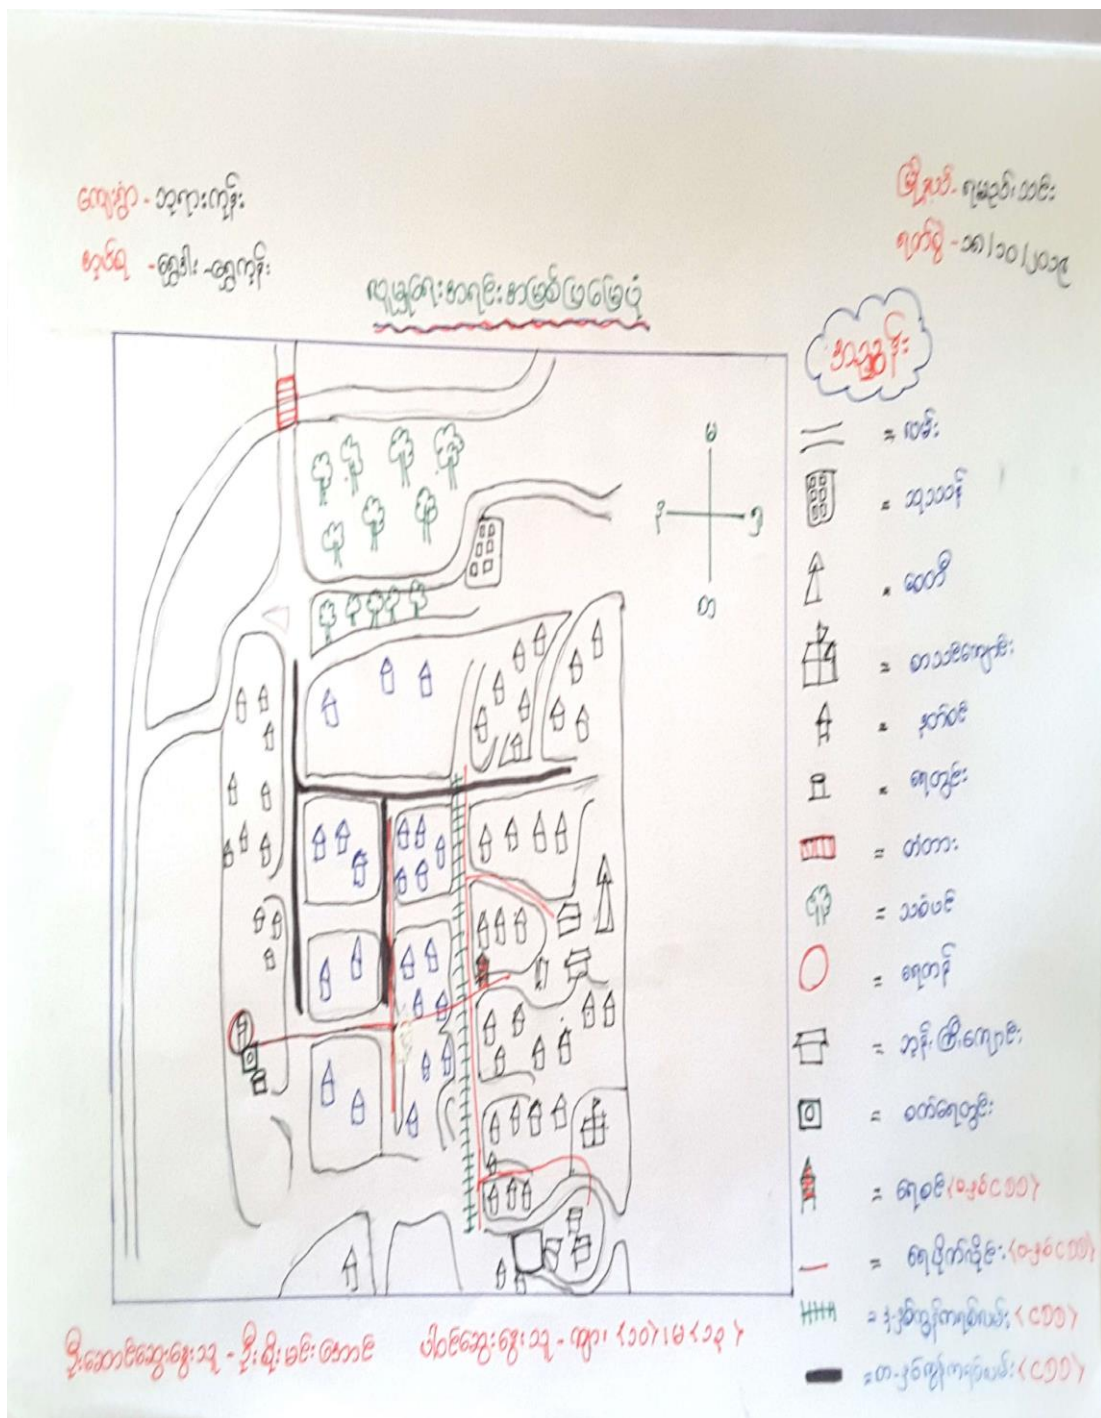 ကျေးရွာ - ဘုရားကုန်း
မြို့နယ် - ရမည်းသင်း
အုပ်စု - ရွှေဒါး - ရွှေကုန်း
ရက်စွဲ - ၁၈/၁၀/၂၀၁၉
လူမှုရေးအရင်းအမြစ်ပြမြေပုံ
အညွှန်း
= လမ်း
မ
= သုသာန်
န
တ
= စေတီ
= စာသင်ကျောင်း
= နတ်စင်
= ရေတွင်း
= တံတား
= သစ်ပင်
= ရေကန်
= ဘုန်းကြီးကျောင်း
= စက်ရေတွင်း
= ရေစင် (ဝ-နှစ် CDD)
= ရေပိုက်လိုင်း (ဝ-နှစ် CDD)
= ဒု-နှစ်ကွန်ကရစ်လမ်း (CDD)
= တ-နှစ်ကွန်ကရစ်လမ်း (CDD)
ဦးဆောင်ဆွေးနွေးသူ - ဦးစိုးမင်းအောင်
ပါဝင်ဆွေးနွေးသူ - ကျား (၁၀) ၊ မ (၁၃)